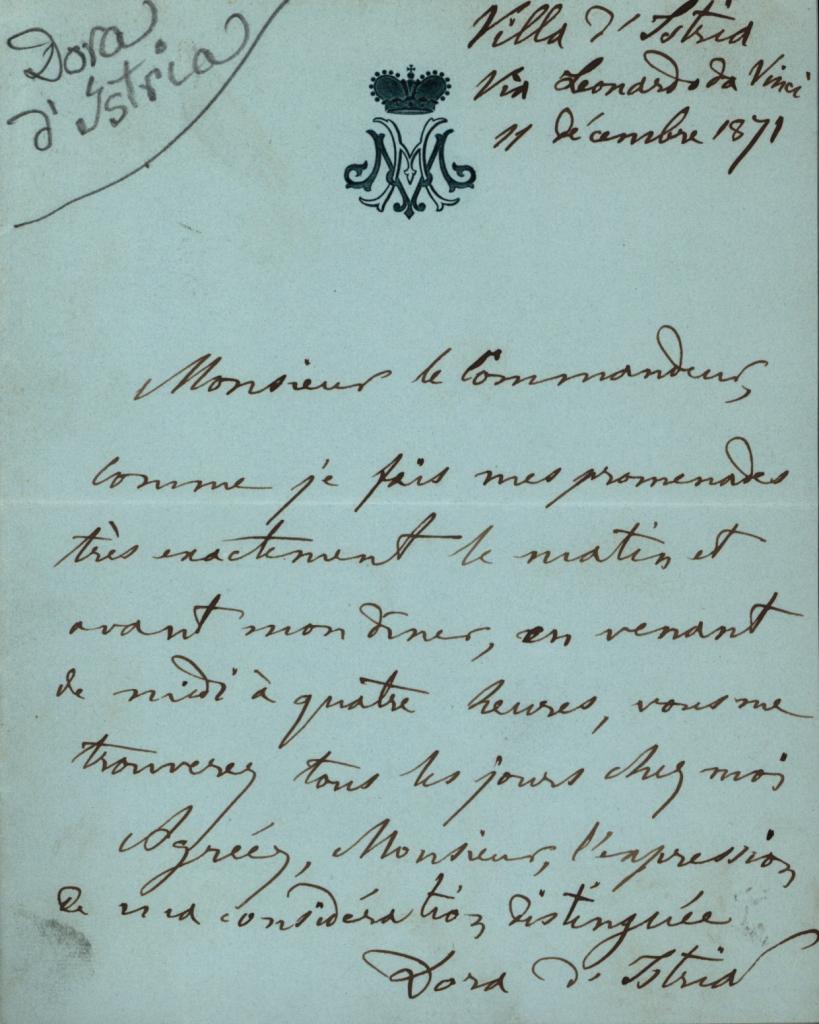 Dora
d'Istria
Villa d'Istria
Via Leonardo da Vinci
11 décembre 1871
Monsieur le Commandeur,
comme je fais mes promenades
très exactement le matin et
avant mon diner, en venant
de midi à quatre heures, vous me
trouverez tous les jours chez moi
Agréez, Monsieur, l'expression
de ma considération distinguée
Dora d'Istria